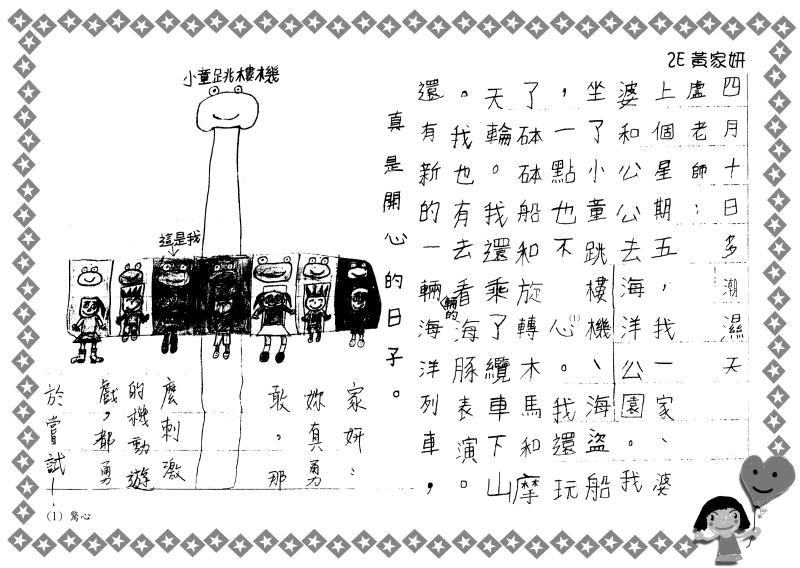 2E 黃家妍
四月十日 多潮濕天
盧老師：
上個星期五，我一家、婆
婆和公公去海洋公園。我
坐了小童跳樓機、海盜船
，一點也不(1)心。我還玩
了砵砵船和旋轉木馬和摩
天輪。我還乘了纜車下山
。我也有去看海豚表演。
還有新的一輛海洋列車，
輛的
真是開心的日子。
小童跳樓機
這是我
家妍：
妳真勇
敢，那
麼刺激
的機動遊
戲，都勇
於嘗試！
(1) 驚心